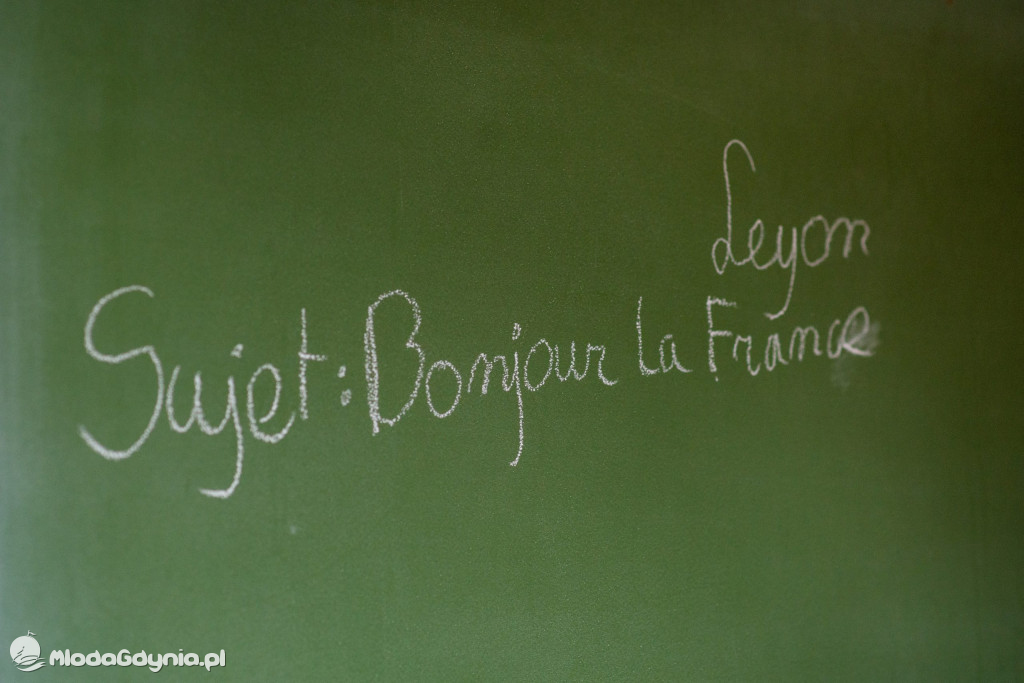 Leyon
Sujet: Bonjour la France
MlodaGdynia.pl